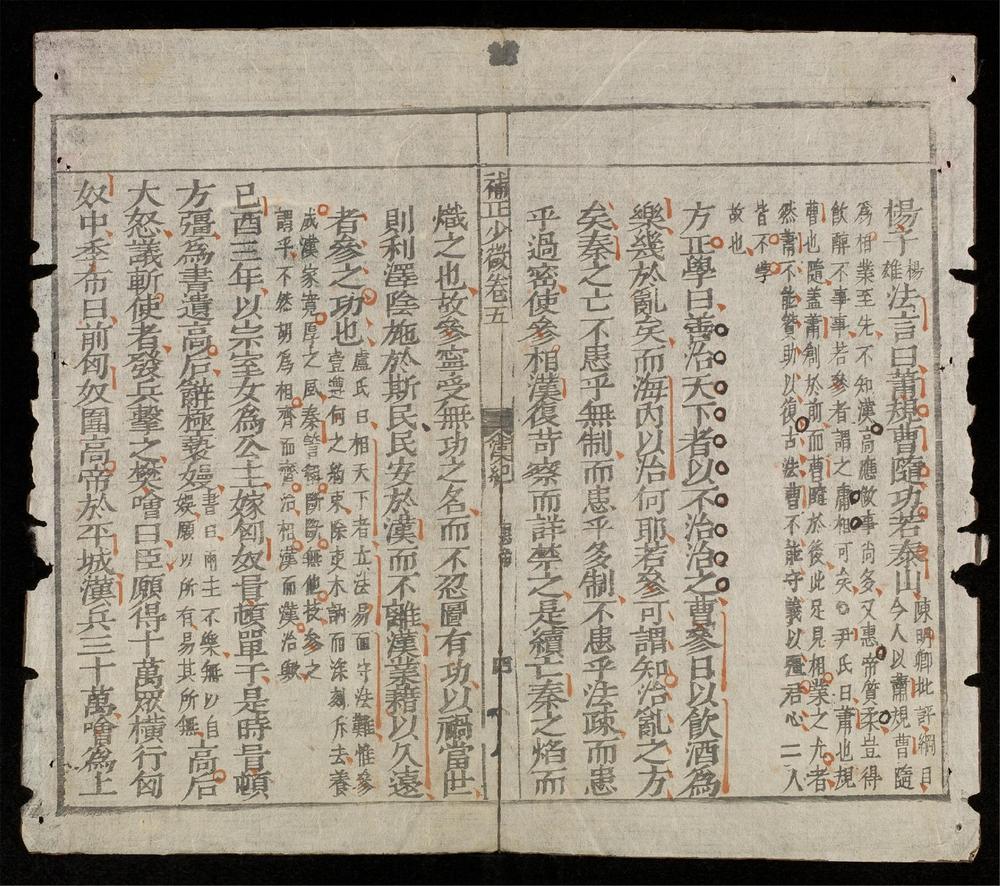 楊子楊雄法言曰蕭規曹隨功若泰山陳明卿批評綱目今人以蕭規曹隨
爲相業至先不知漢高應敵事尚多又惠帝質柔豈得
飲醉不事事若參者謂之庸相可矣○尹氏曰蕭也規
曹也隨蓋蕭創於前而曹隨於後此足見相業之尤者
然蕭不能贊助以復古法曹不能守義以彊君心二人
皆不學
故也
方正學曰善治天下者以不治治之曹參日以飲酒爲
樂幾於亂矣而海內以治何耶若參可謂知治亂之方
矣秦之亡不患乎無制而患乎多制不患乎法疎而患
乎過密使參相漢復苛察而詳禁之是續亡秦之焰而
補正少微卷五
漢紀
惠帝
熾之也故參寧受無功之名而不忍圖有功以禍當世
則利澤陰施於斯民民安於漢而不離漢業藉以久遠
者參之功也盧氏曰相天下者立法易而守法難惟參
壹遵何之約束除吏木訥而深刻斥去養
成漢家寬厚之風秦誓稱斷斷無他技參之
謂乎不然胡爲相齊而齊治相漢而漢治歟
己酉三年以宗室女爲公主嫁匈奴冒頓單于是時冒頓
方彊爲書遺高后辭極褻嫚書曰兩主不樂無以自
娛願以所有易其所無高后
大怒議斬使者發兵擊之樊噲曰臣願得十萬眾橫行匈
奴中季布曰前匈奴圍高帝於平城漢兵三十萬噲爲上